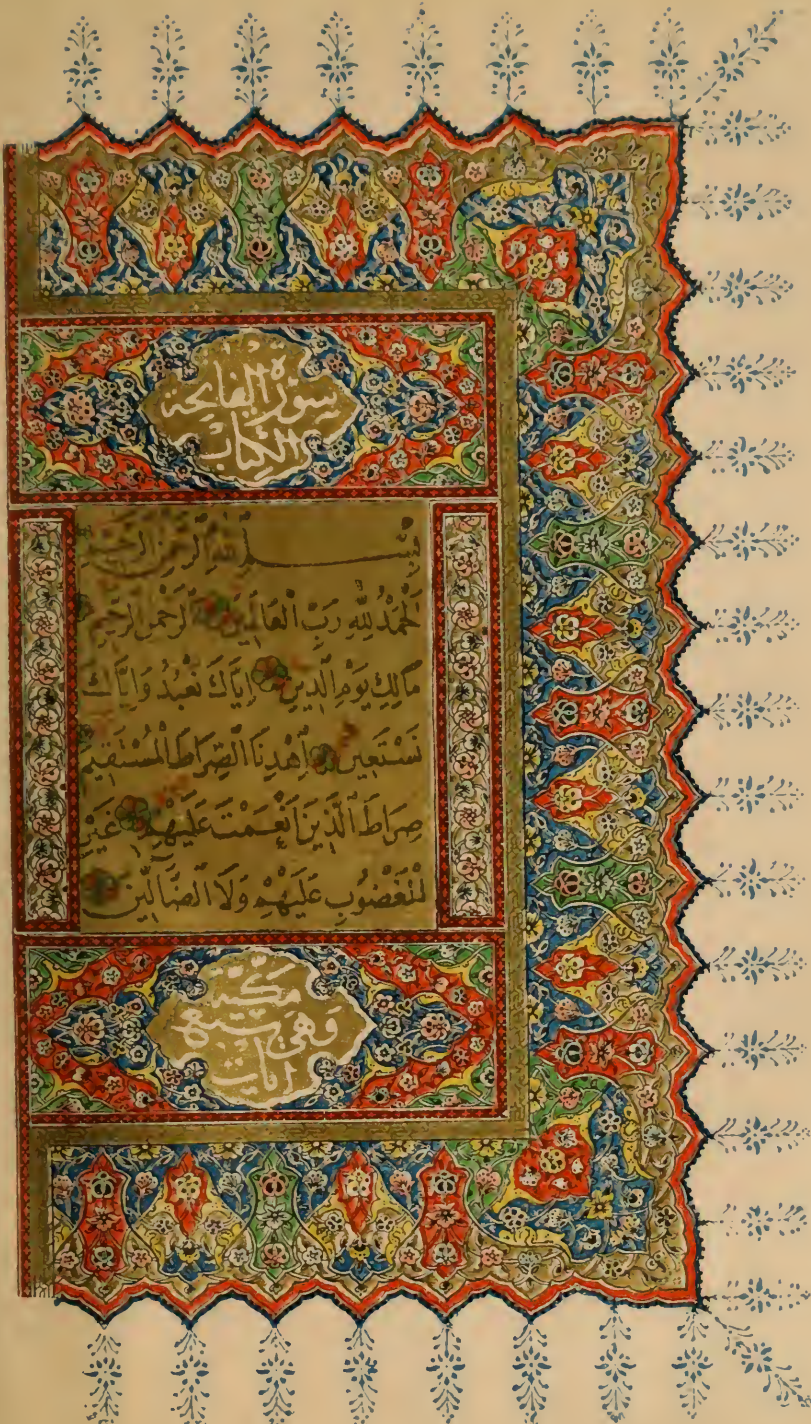 سورة الفاتحة
الكتاب
بِسْمِ اللهِ الرَّحْمٰنِ الرَّحِيمِ
اَلْحَمْدُ لِلّٰهِ رَبِّ الْعَالَمِينَ اَلرَّحْمٰنِ الرَّحِيمِ
مَالِكِ يَوْمِ الدِّينِ اِيَّاكَ نَعْبُدُ وَاِيَّاكَ
نَسْتَعِينُ اِهْدِنَا الصِّرَاطَ الْمُسْتَقِيمَ
صِرَاطَ الَّذِينَ اَنْعَمْتَ عَلَيْهِمْ غَيْرِ
الْمَغْضُوبِ عَلَيْهِمْ وَلَا الضَّٓالِّينَ
مكية
وهي سبع
ايات